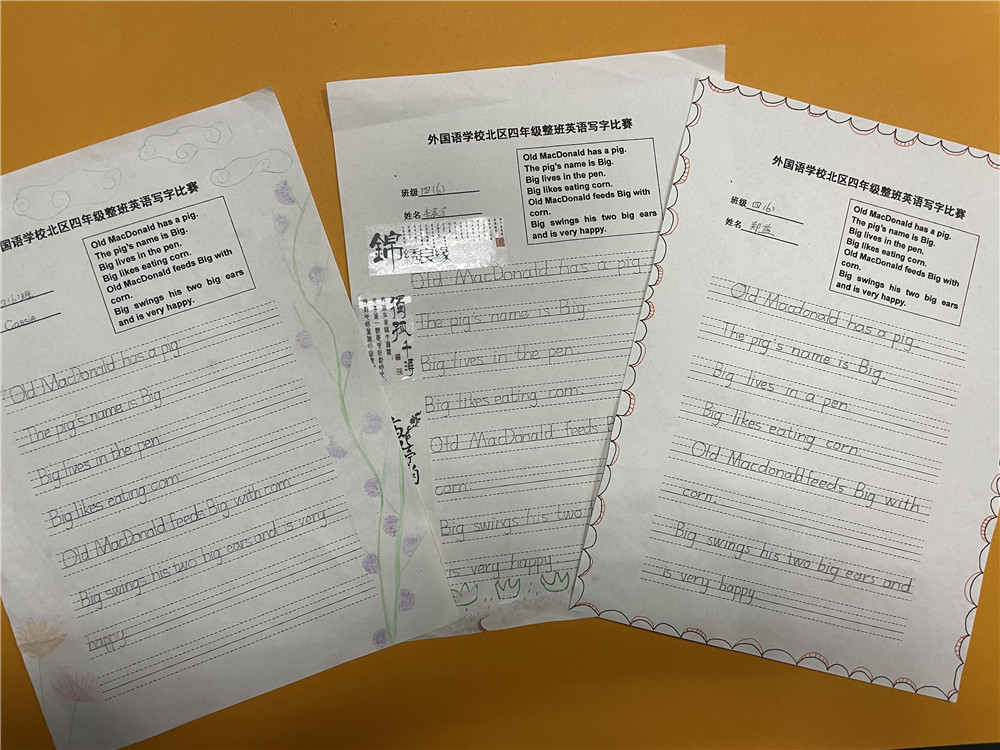 国语学校北区四年级整班英语写字比赛
Old MacDonald has a pig.
The pig's name is Big.
Big lives in the pen.
Big likes eating corn.
Old MacDonald feeds Big with
corn.
Big swings his two big ears
and is very happy.
四(6)班
Cassie
Old MacDonald has a pig.
The pig's name is Big.
Big lives in the pen.
Big likes eating corn.
Old MacDonald feeds Big with corn.
Big swings his two big ears and is very
happy.
外国语学校北区四年级整班英语写字比赛
Old MacDonald has a pig.
The pig's name is Big.
Big lives in the pen.
Big likes eating corn.
Old MacDonald feeds Big with
corn.
Big swings his two big ears
and is very happy.
班级 四(6)
姓名
錦
Old MacDonald has a pig.
The pig's name is Big.
Big lives in the pen.
Big likes eating corn.
Old MacDonald feeds
corn.
Big swings his two
is very happy.
外国语学校北区四年级整班英语写字比赛
Old MacDonald has a pig.
The pig's name is Big.
Big lives in the pen.
Big likes eating corn.
Old MacDonald feeds Big with
corn.
Big swings his two big ears
and is very happy.
班级 四(6)
姓名
Old Macdonald has a pig.
The pig's name is Big.
Big lives in a pen.
Big likes eating corn.
Old Macdonald feeds Big with
corn.
Big swings his two big ears and
is very happy.